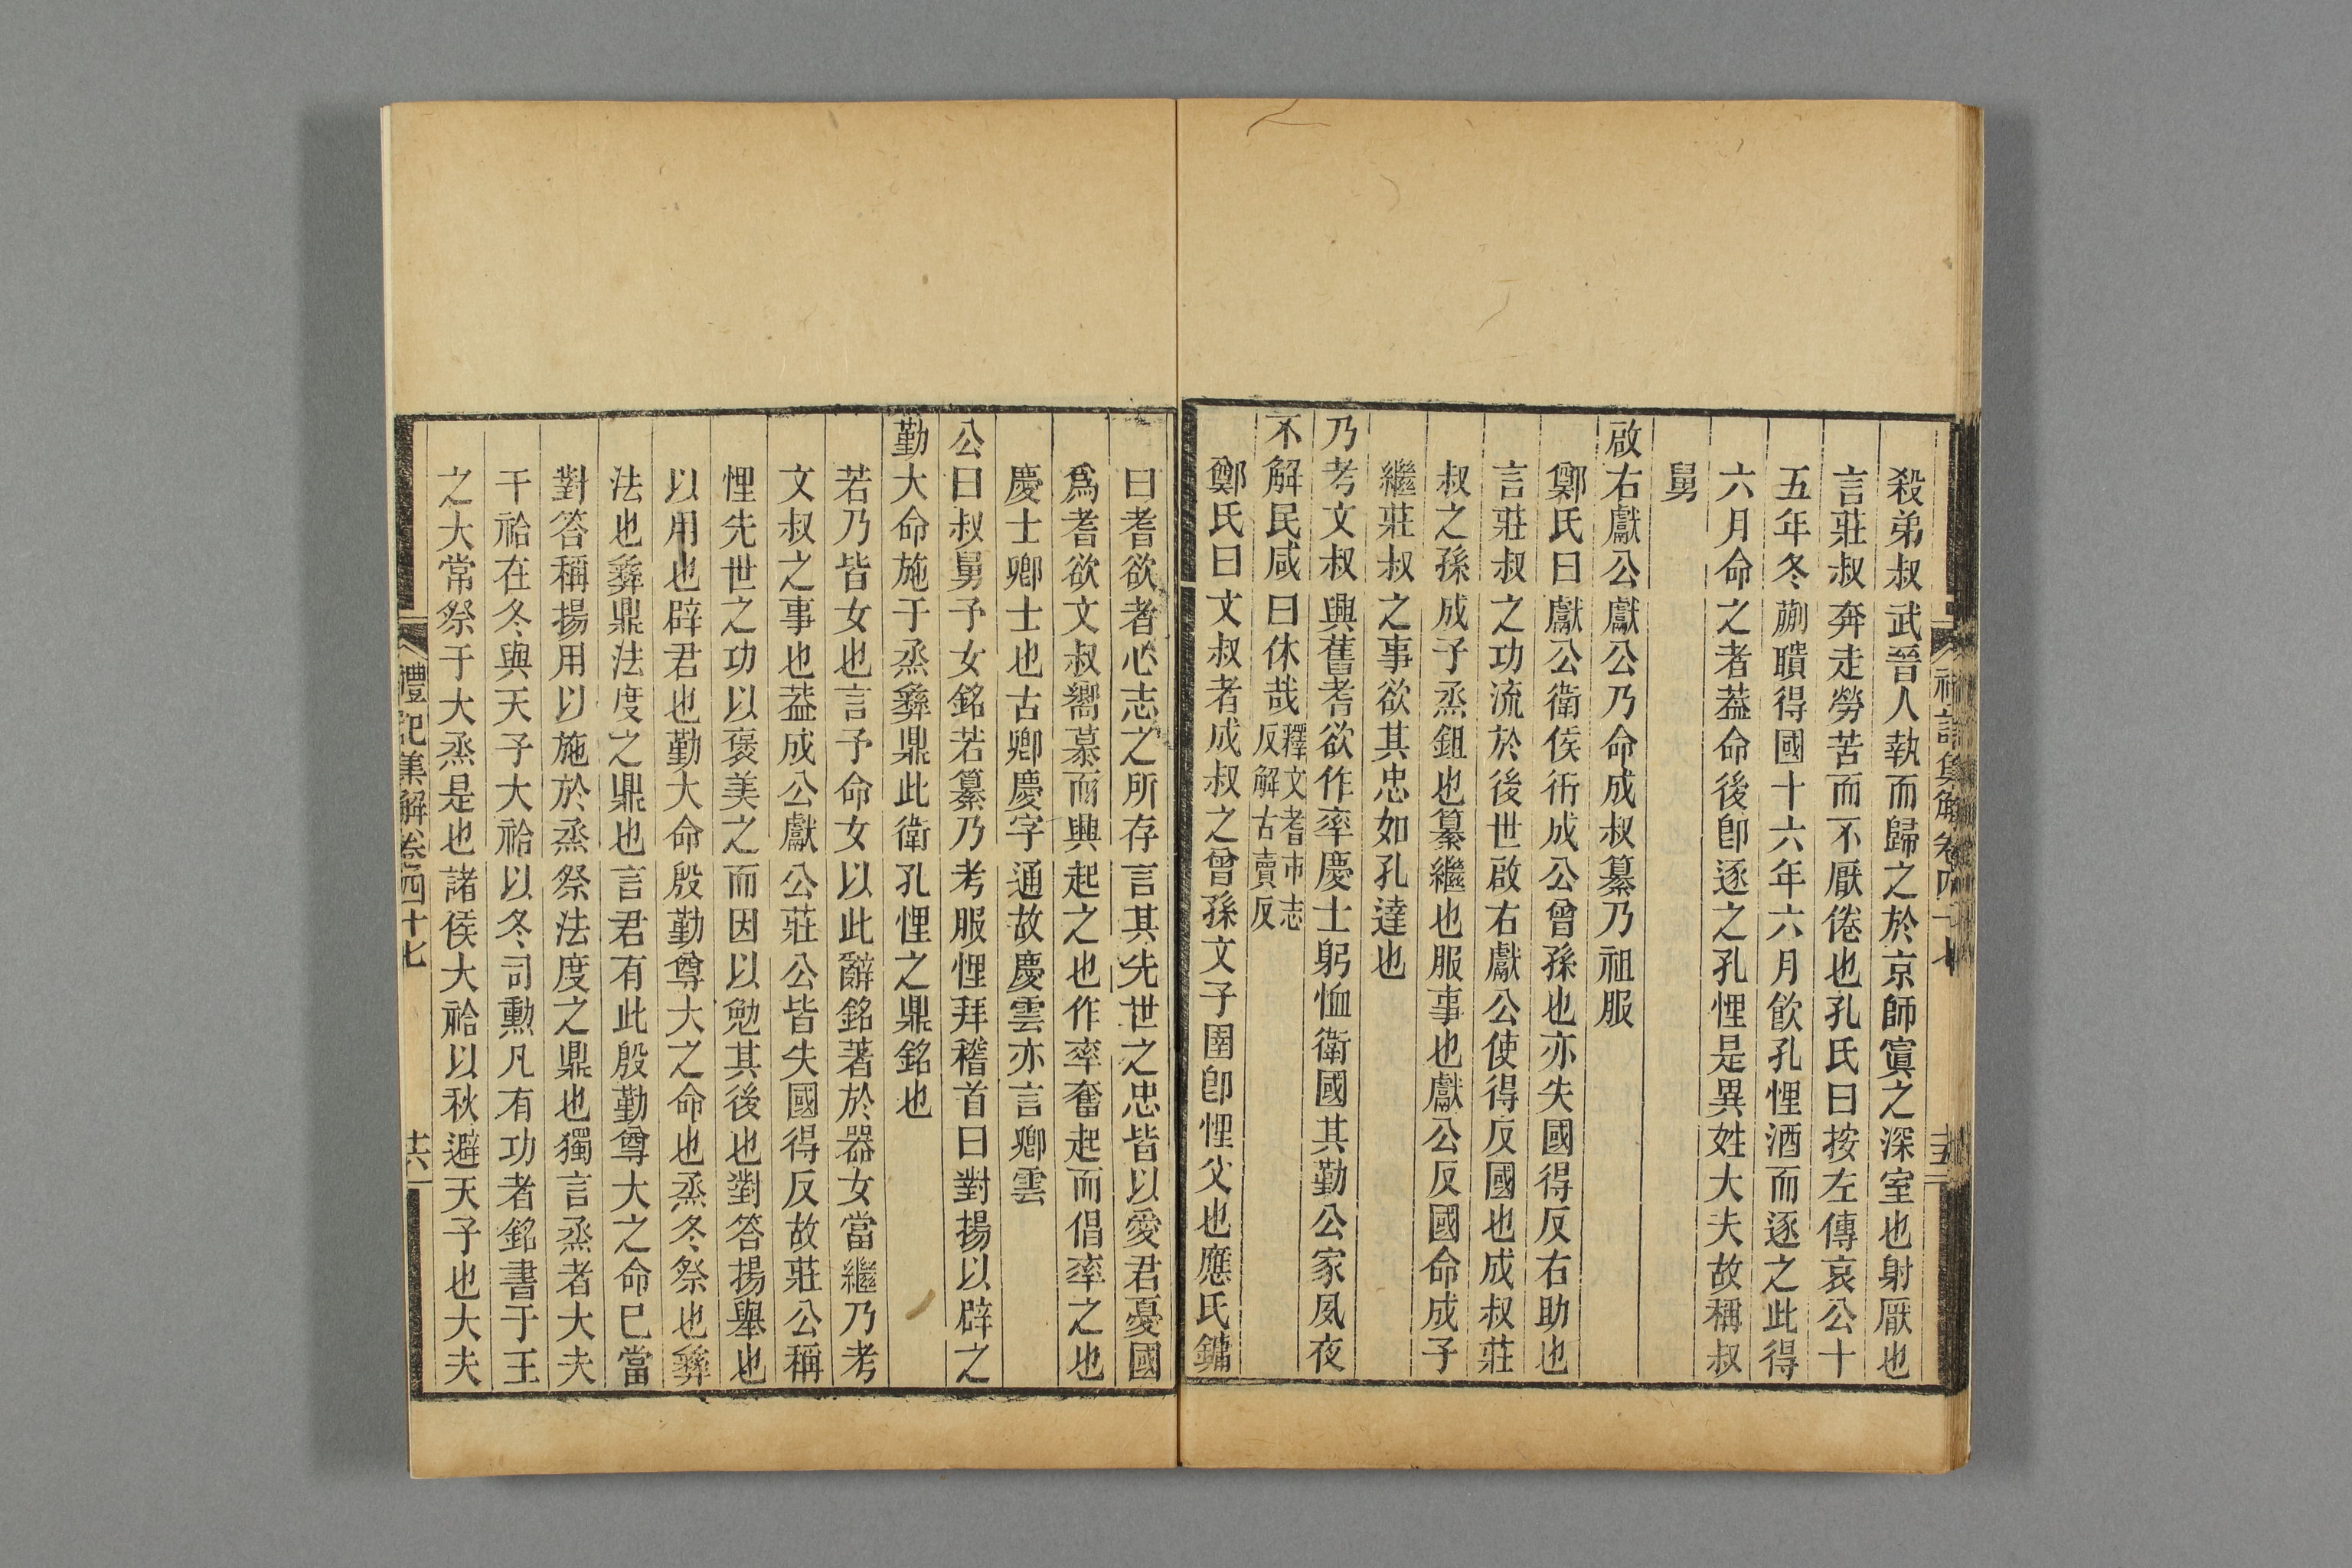 殺弟叔武晉人執而歸之於京師寘之深室也射厭也
言莊叔奔走勞苦而不厭倦也孔氏曰按左傳哀公十
五年冬蒯聵得國十六年六月飲孔悝酒而逐之此得
六月命之者葢命後卽逐之孔悝是異姓大夫故稱叔
舅
啟右獻公獻公乃命成叔纂乃祖服
鄭氏曰獻公衛侯衎成公曾孫也亦失國得反右助也
言莊叔之功流於後世啟右獻公使得反國也成叔莊
叔之孫成子烝鉏也纂繼也服事也獻公反國命成子
繼莊叔之事欲其忠如孔達也
乃考文叔興舊耆欲作率慶士躬恤衛國其勤公家夙夜
不解民咸曰休哉釋文耆市志反解古賣反
鄭氏曰文叔者成叔之曾孫文子圉卽悝父也應氏鏞
曰耆欲者心志之所存言其先世之忠皆以愛君憂國
爲耆欲文叔嚮慕而興起之也作率奮起而倡率之也
慶士卿士也古卿慶字通故慶雲亦言卿雲
公曰叔舅予女銘若纂乃考服悝拜稽首曰對揚以辟之
勤大命施于烝彝鼎此衛孔悝之鼎銘也
若乃皆女也言予命女以此辭銘著於器女當繼乃考
文叔之事也葢成公獻公莊公皆失國得反故莊公稱
悝先世之功以褒美之而因以勉其後也對答揚舉也
以用也辟君也勤大命殷勤尊大之命也烝冬祭也彝
法也彝鼎法度之鼎也言君有此殷勤尊大之命已當
對答稱揚用以施於烝祭法度之鼎也獨言烝者大夫
干祫在冬與天子大祫以冬司勳凡有功者銘書于王
之大常祭于大烝是也諸侯大祫以秋避天子也大夫
禮記集解卷四十七
十六